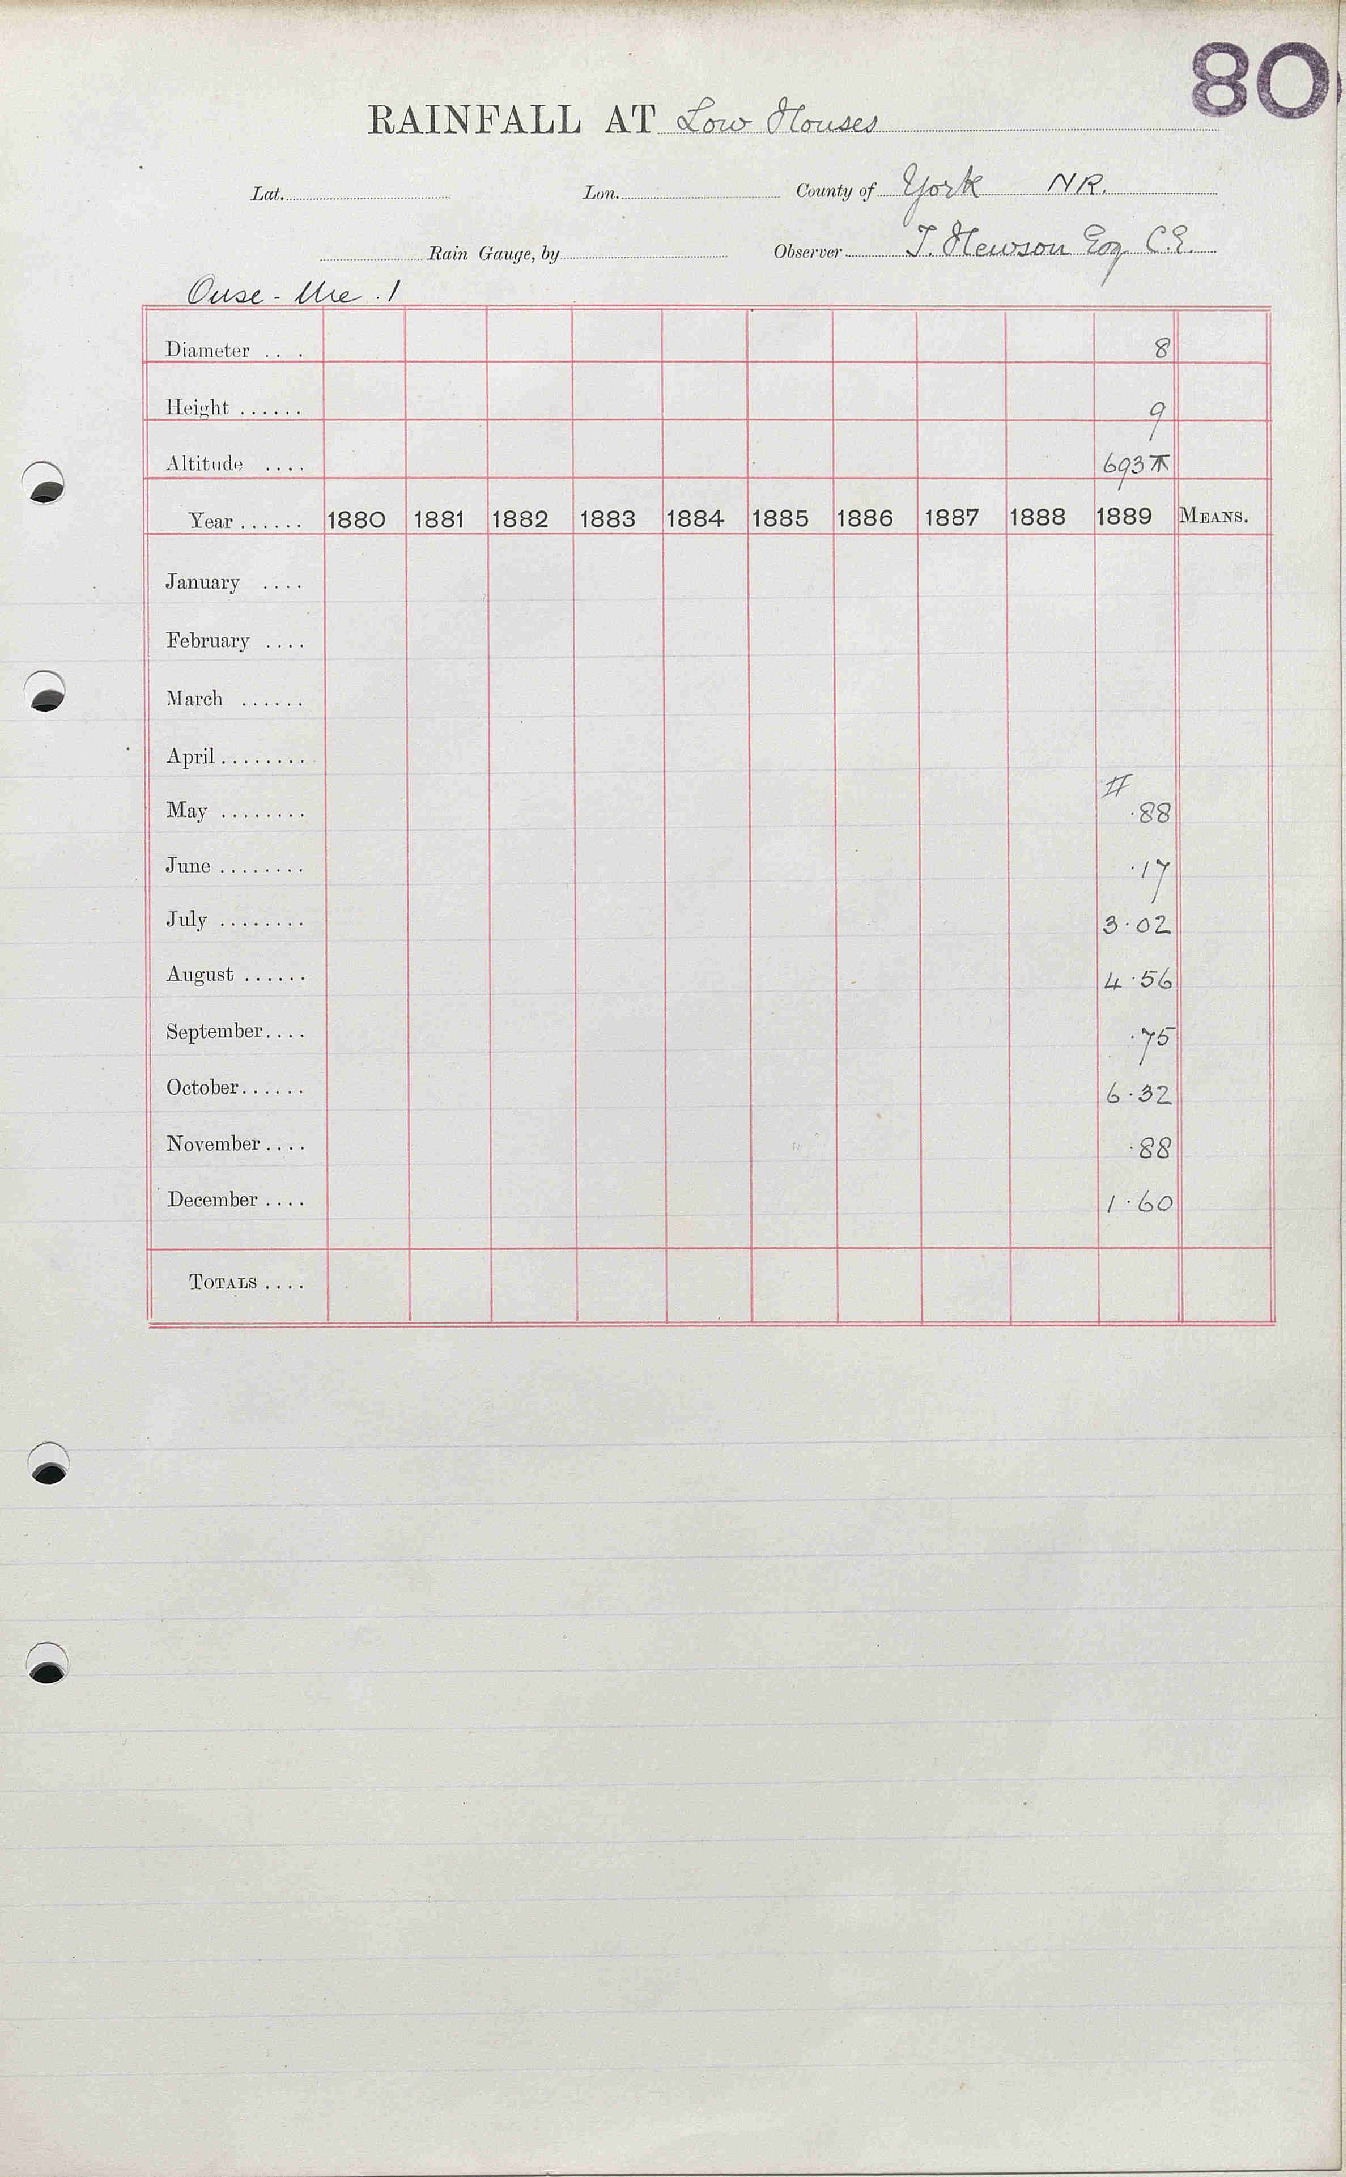 80
RAINFALL AT Low Houses
Lat. Lon. County of York NR.
Rain Gauge, by Observer T. Hewson Esq C.E.
Ouse - Ure . 1
Diameter ... 8
Height ...... 9
Altitude .... 693
Year ...... 1880 1881 1882 1883 1884 1885 1886 1887 1888 1889 MEANS.
January ....
February ....
March ......
April ........
May ........ .88
June ........ .17
July ........ 3.02
August ...... 4.56
September.... .75
October...... 6.32
November.... .88
December.... 1.60
TOTALS ....